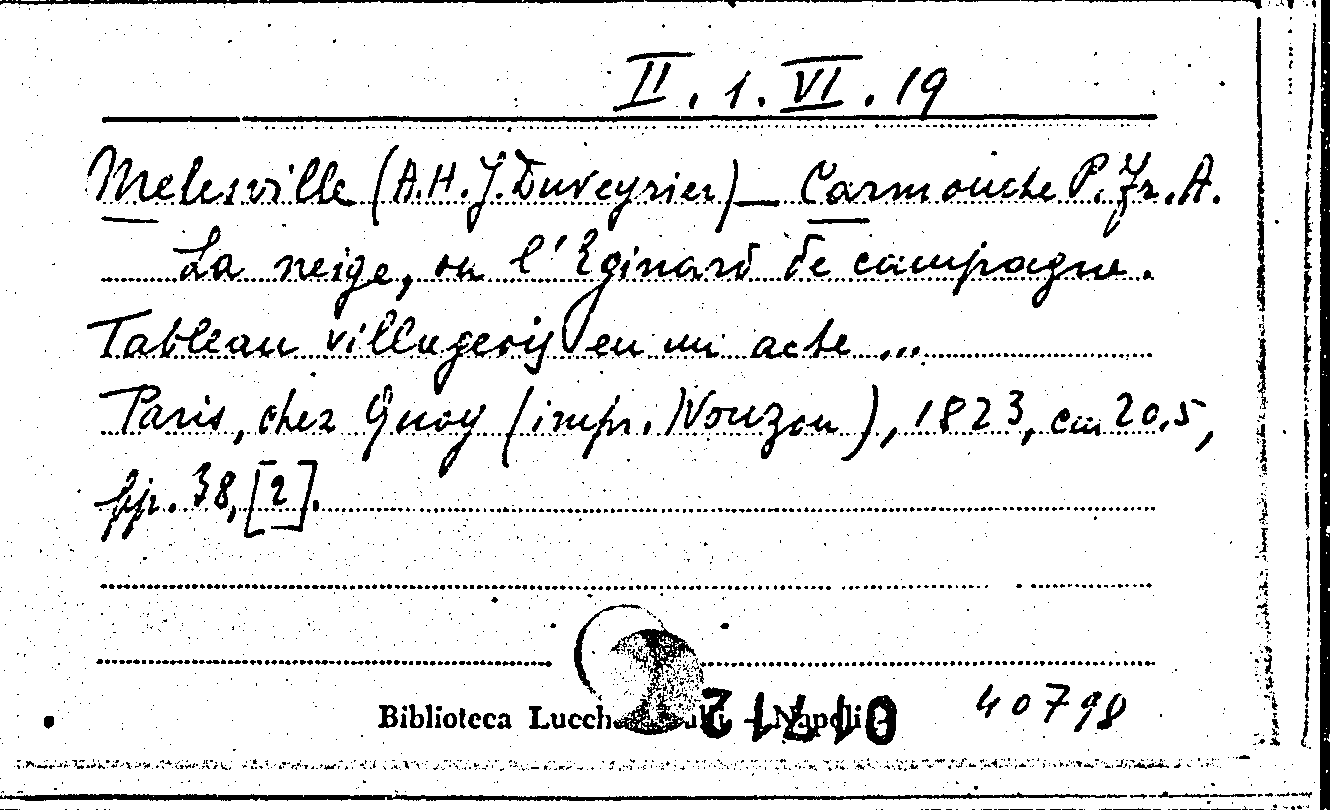 II. 1. VI. 19
Melesville (A.H.J. Duveyrier) — Carmouche P. Fr. A.
La neige, ou l'Eginard de campagne.
Tableau villageois en un acte ...
Paris, chez Quoy (impr. Nouzou), 1823, cm 20,5,
pp. 38, [2].
Biblioteca Lucch Napoli
40798